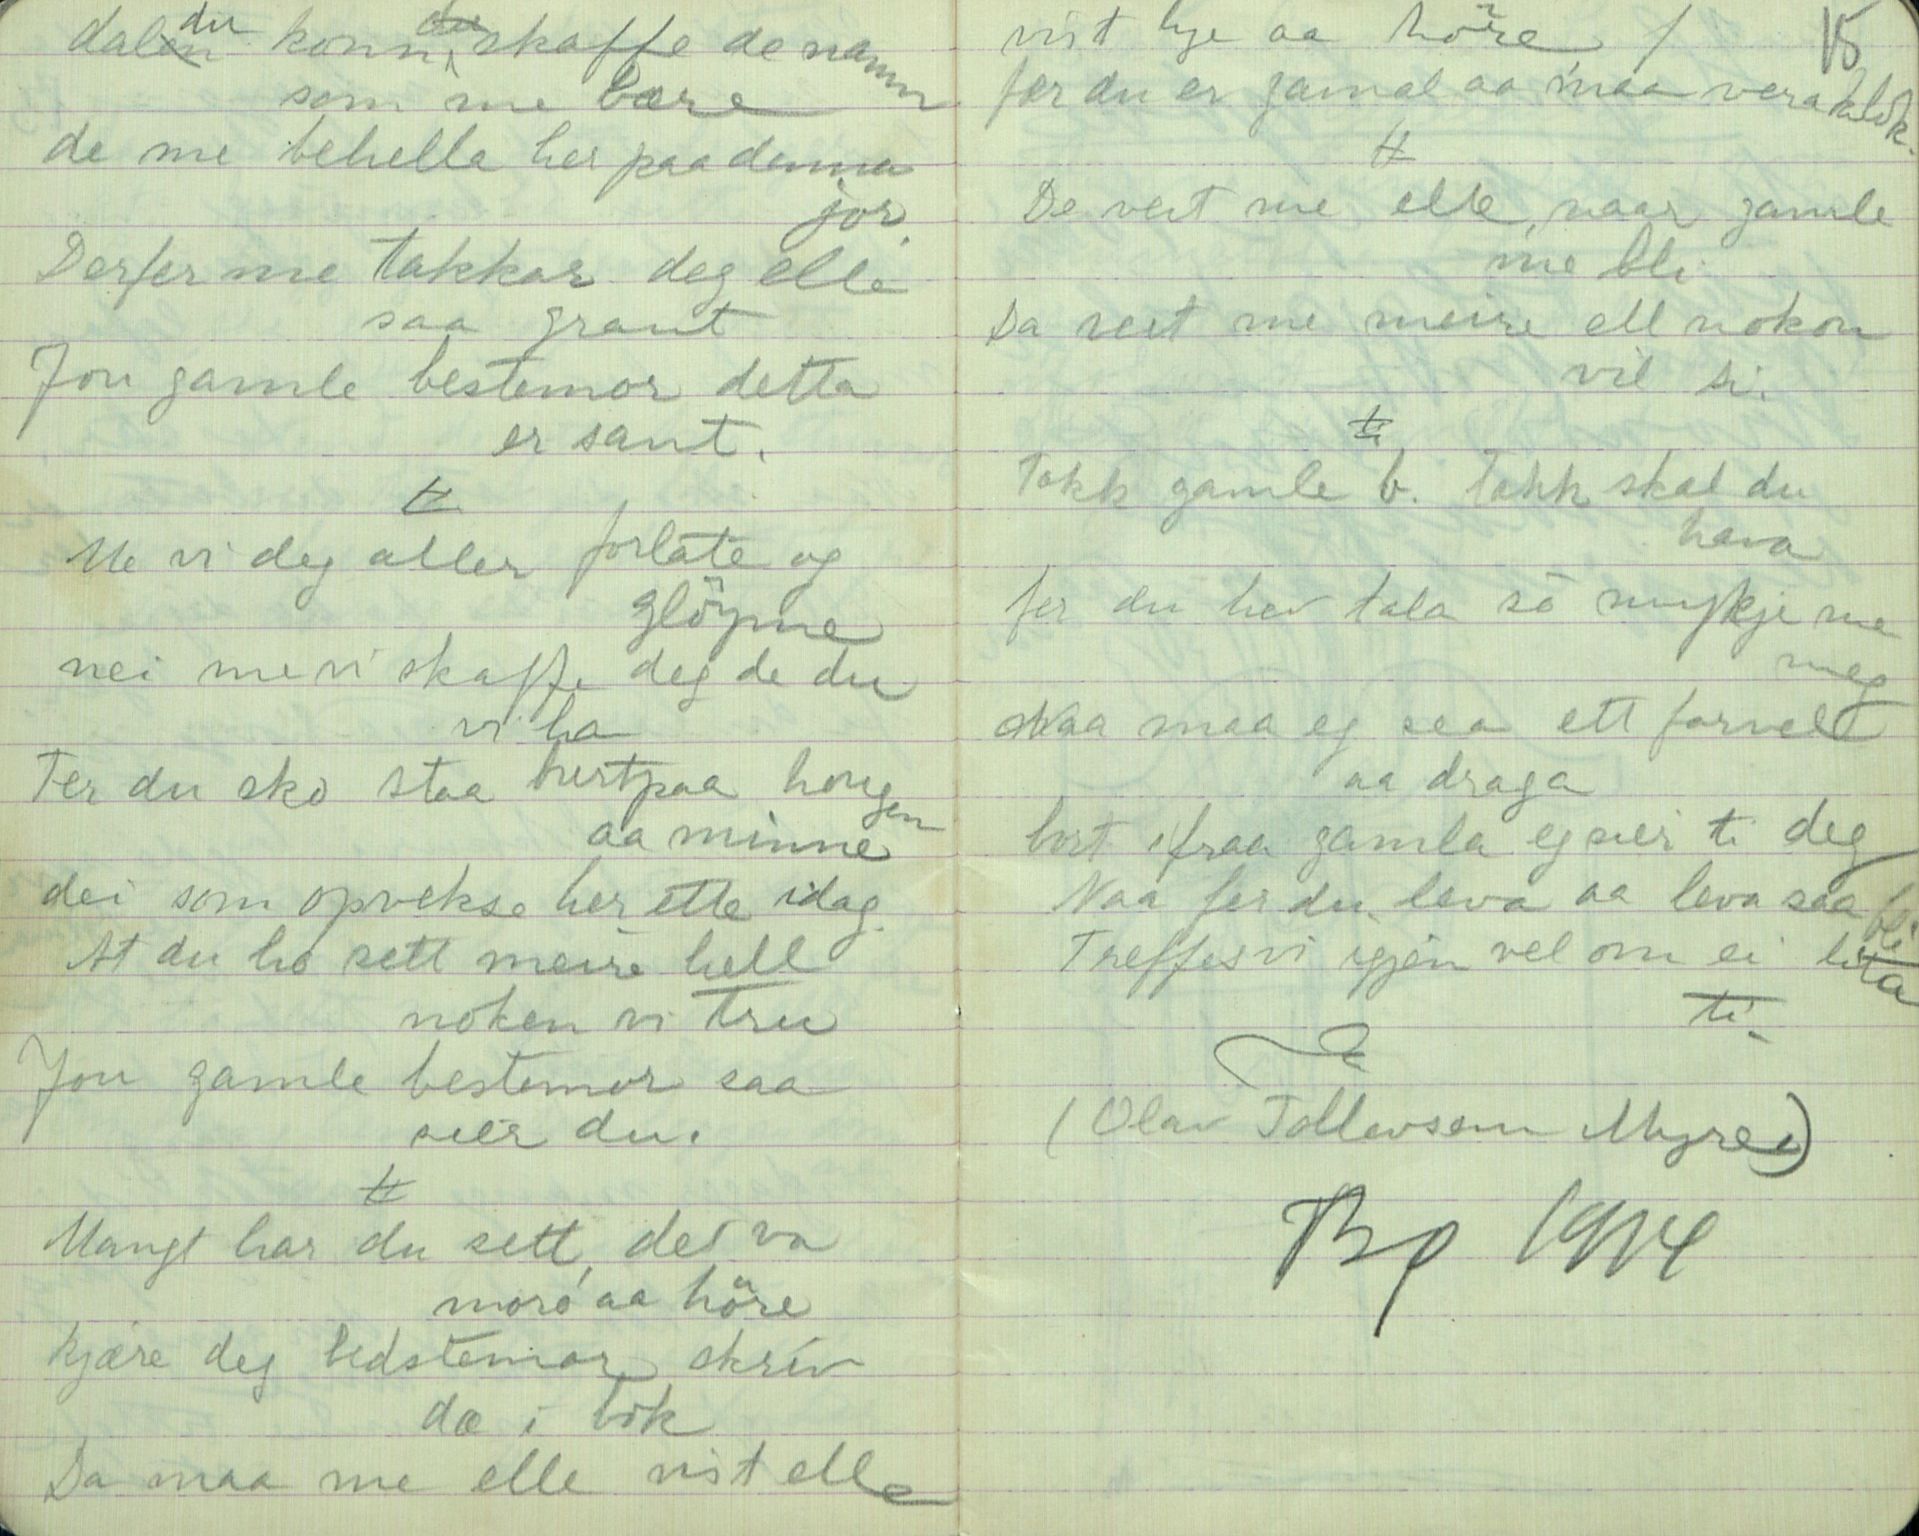 dalen du konn skaffe de namn
som me bære
de me behella her paa denna
jor.
Derfer me takkar deg elle
saa grant
Jou gamle bestemor detta
er sant.
Me vi deg aller forlate og
glöyme
nei me vi skaffe deg de du
vi ha
Ter du sko staa burtpaa hougen
aa minne
dei som opvekse her ette idag.
At du ho sett meire hell
noken vi tru
Jou gamle bestemor saa
sier du.
Mangt har du sett, det va
moro aa höre
kjære deg bedstemor skriv
dæ i bok
Da maa me elle vist elle
15
vist lye aa höre /
fer du er gamal aa maa vera klok.
De veit me elle, naar gamle
me bli
Da veit me meire ell nokon
vil si.
Takk gamle b. Takk skal du
hava
fer du hev tala så mykje me
meg
Naa maa eg sea ett farvell
aa draga
bort ifraa gamla eg sier ti deg
Naa fer du leva aa leva saa bli
Treffes vi igjen vel om ei lita
ti.
(Olav Tollevsen Myrei)
Bø 1914